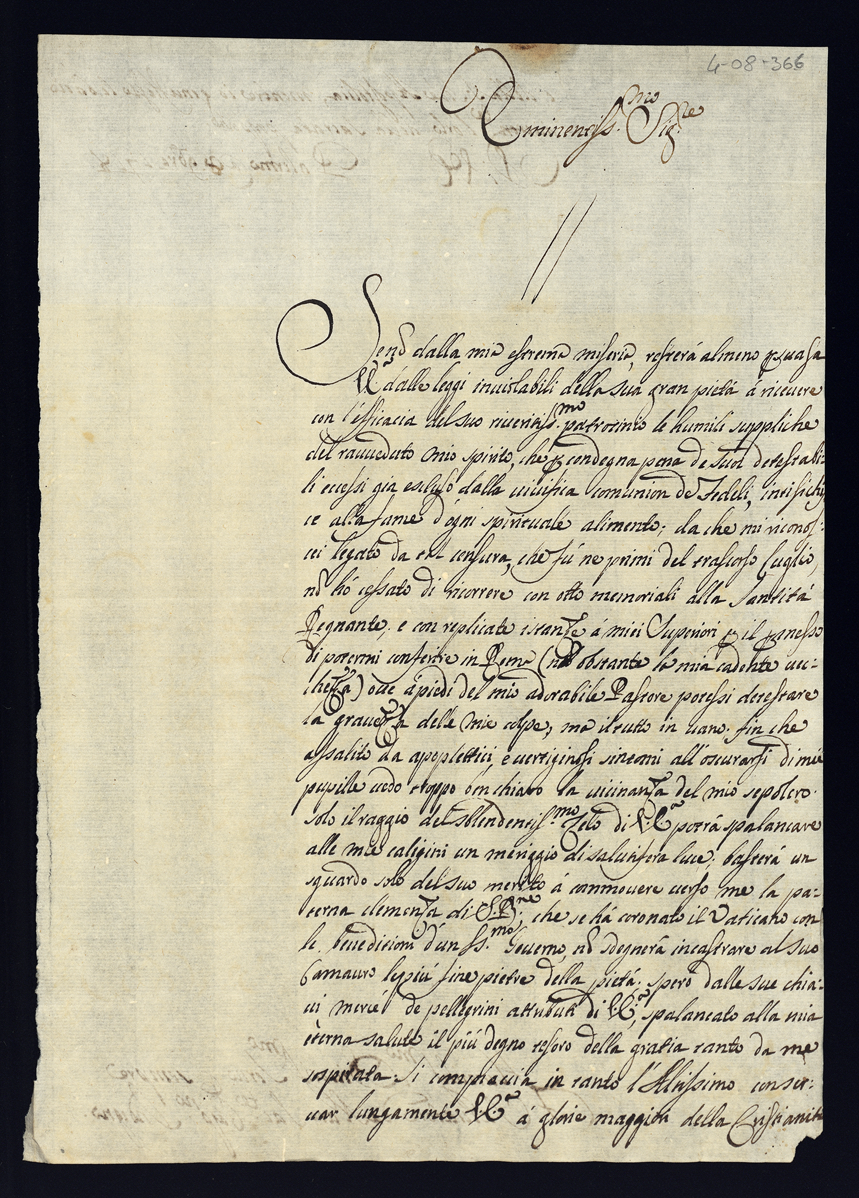 4-08-366
Eminentiss.mo Sig.re
Se nõ dalla mia estrema miseria, resterá almeno
V.E. dalle leggi inviolabili della sua gran pietá á ricevere
con l'efficacia del suo riveritiss.mo patrocinio le humili suppliche
del ravveduto mio spirito, che condegna pena de suoi detestabi-
li eccessi giá escluso dalla vivifica comunion dè Fedeli,
ce alla fame d'ogni spirituale alimento; da che mi riconos-
cei legato da tal censura, che fú ne primi del trascorso luglio,
nõ hó cessato di ricorrere con otto memoriali alla Santitá
Regnante, e con replicate istanze á miei Superiori il
di potermi conferire in Roma (nõ obstante la mia cadente vec-
chezza) ove á piedi del mio adorabile Pastore potessi detestare
la gravezza delle mie colpe, ma il tutto in vano; fin che
assalito da apoplettici, e vertiginosi sintomi all'oscurarsi di mie
pupille vedo troppo bẽn chiaro la vicinanza del mio sepolcro.
solo il raggio del splendentiss.mo Zelo di V.E. potrá spalancare
alle mie caligini un meriggio di salutifera luce; basterá un
sguardo solo del suo merito á commovere verso me la pa-
terna clemenza di S. B.ne, che se há coronato il Vaticano con
le benedizioni d'un SS.mo Governo, nõ sdegnerá incastrare al suo
Camauro le piú fine pietre della pietá; spero dalle sue chia-
vi mercé de pellegrini attributi di V.E. spalancato alla mia
eterna salute il piú degno tesoro della gratia tanto da me
sospirata. Si compiaccia in tanto l'Altissimo conser-
var lungamente V.E. á glorie maggiori della Cristianitá